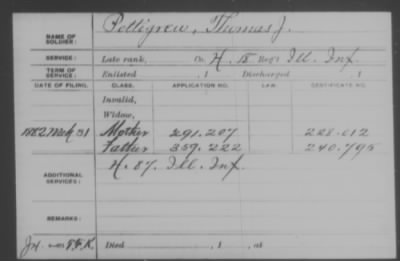 NAME OF SOLDIER: Pettigrew, Thomas J.
SERVICE: Late rank, Co. H, 18 Reg't Ill. Inf.
TERM OF SERVICE: Enlisted , 1 Discharged , 1
DATE OF FILING. CLASS. APPLICATION NO. LAW. CERTIFICATE NO.
Invalid,
Widow,
1882 Mch 31 Mother 291.207 228.012
Father 359.222 240.795
ADDITIONAL SERVICES: H. 87. Ill. Inf.
REMARKS:
Died , 1 , at